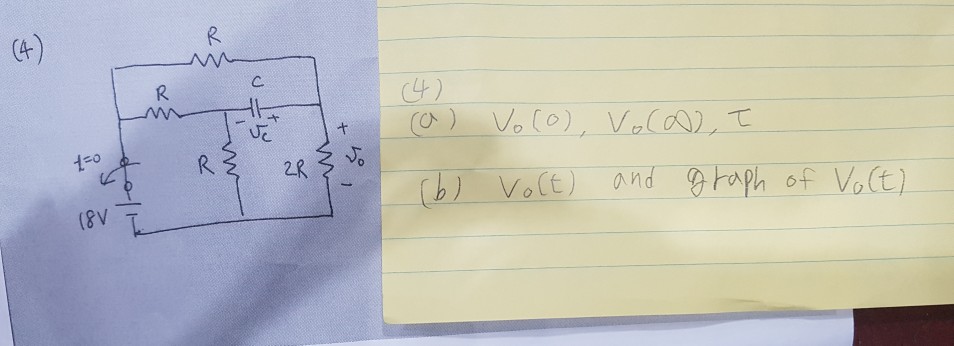 (4)
R
R
C
- +
Vc
t=0
R
2R
+
Vo
-
18V
(4)
(a) Vo(0), Vo(∞), τ
(b) Vo(t) and graph of Vo(t)